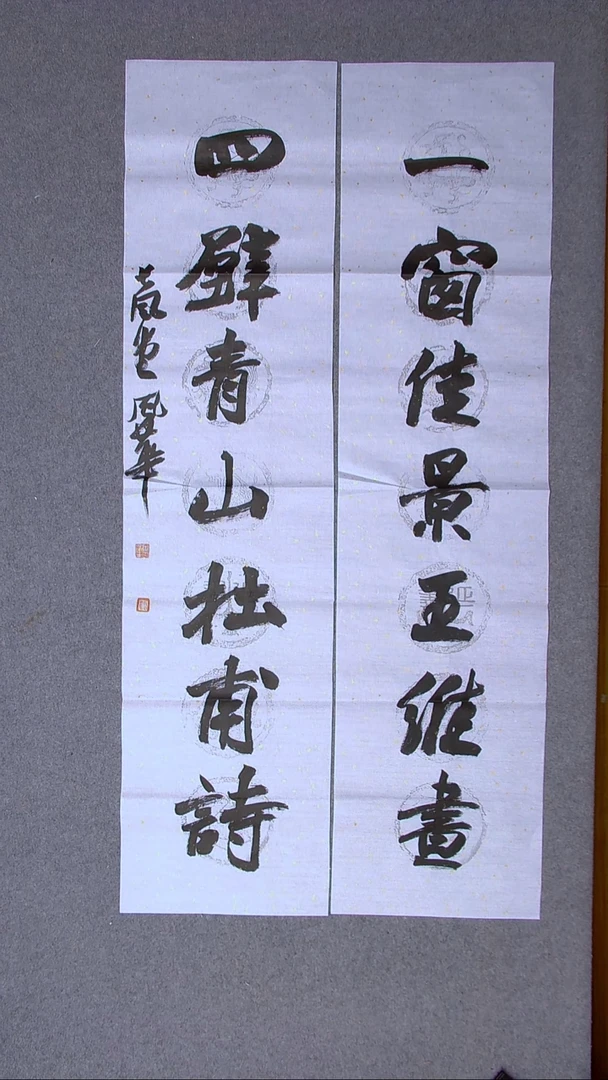 一窗佳景王維畫
四壁青山杜甫詩